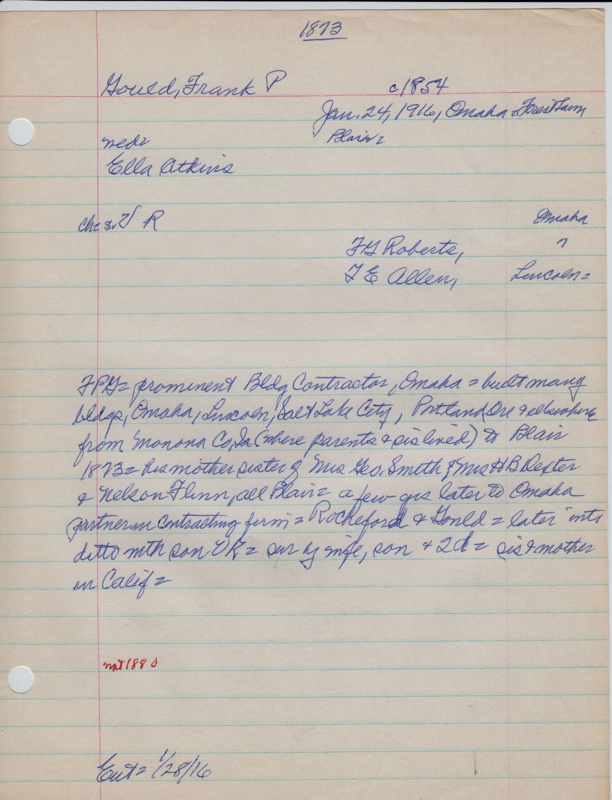 1873
Gould, Frank P c1854
Jan. 24, 1916, Omaha Forest Lawn
med= Blair=
Ella Atkins
ch= 3: V R Omaha
F G Roberts, "
F E Allen, Lincoln=
FPG= prominent Bldg Contractor, Omaha = built many
bldgs, Omaha, Lincoln, Salt Lake City, Portland Ore & elsewhere
from Monona Co, Ia (where parents & sis lived) to Blair
1873= his mother sister of Mrs Geo. Smith & Mrs H B Dexter
& Nelson Flinn, all Blair= a few yrs later to Omaha
partner in contracting firm = Rocheford & Gould = later into
ditto with son VR= sur by wife, son & 2d= sis & mother
in Calif=
not 1880
Ent= 1/28/16